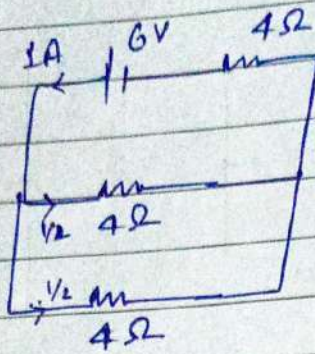 1A 6V 4Ω
1/2 4Ω
1/2
4Ω